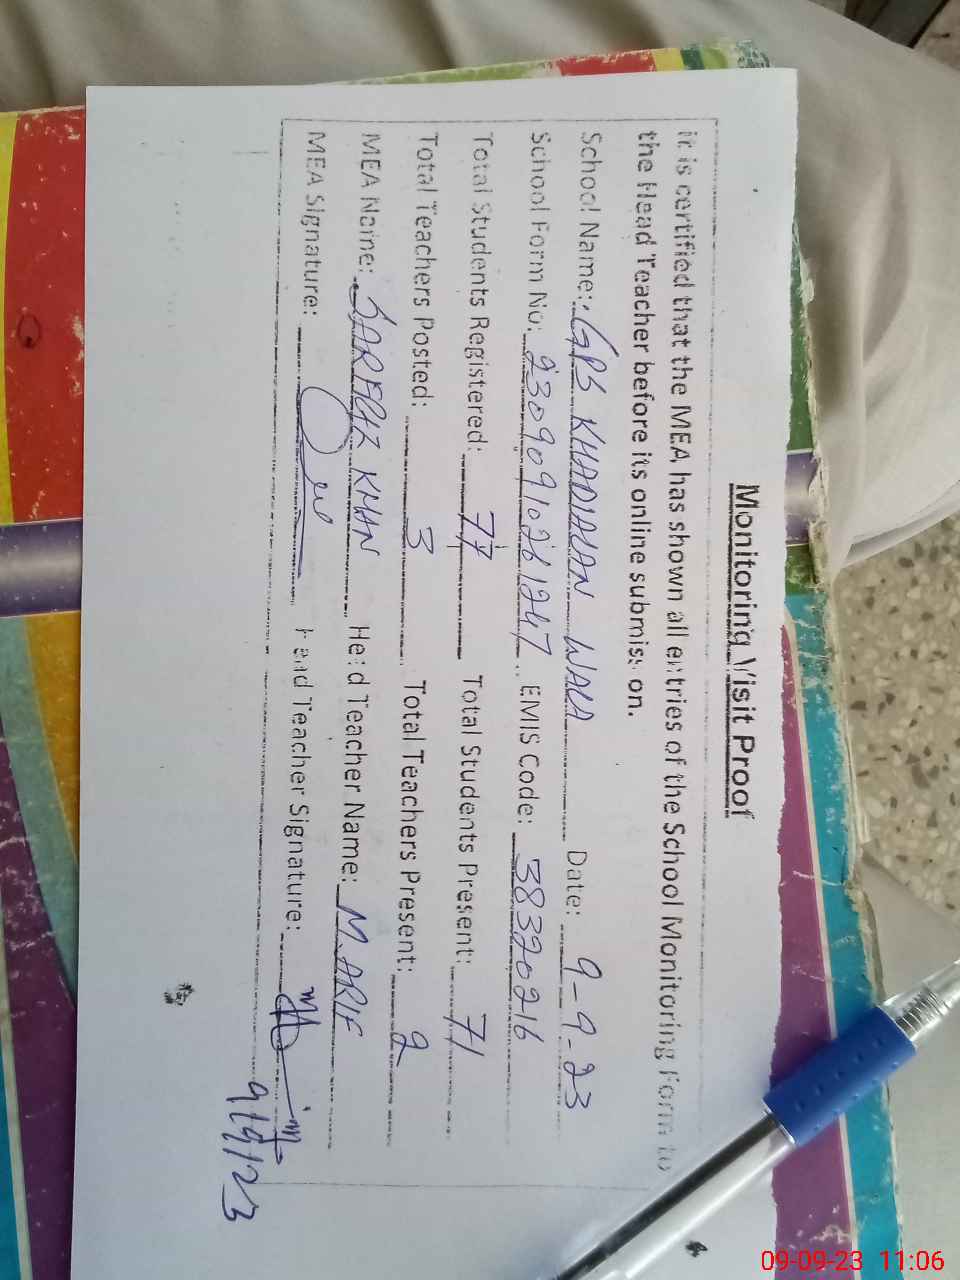 Monitoring Visit Proof
it is certified that the MEA has shown all entries of the School Monitoring Form to
the Head Teacher before its online submission.
School Name: GPS KHADIALAN WALA Date: 9-9-23
School Form No: 23090910261247 EMIS Code: 38320216
Total Students Registered: 77 Total Students Present: 71
Total Teachers Posted: 3 Total Teachers Present: 2
MEA Name: SARFRAZ KHAN Head Teacher Name: M. ARIF
MEA Signature: Head Teacher Signature:
9/9/23
09-09-23 11:06